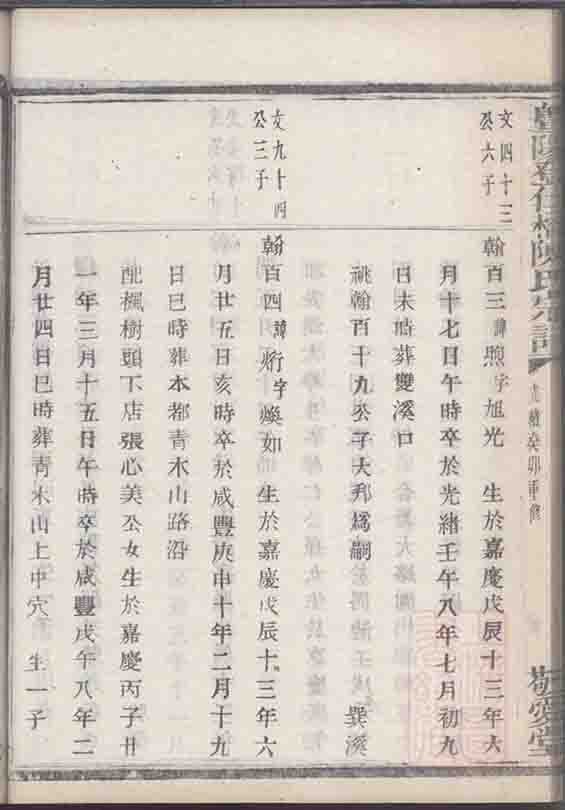 陳氏宗譜
光緒癸卯重修
敬愛堂
文四十三
公六子
翰百三諱煦字旭光 生於嘉慶戊辰十三年六
月十七日午時卒於光緒壬午八年七月初九
日未時葬雙溪口
祧翰百十九公子大邦爲嗣 巽溪
文九十四
公三子
翰百四諱烆字煥如 生於嘉慶戊辰十三年六
月廿五日亥時卒於咸豐庚申十年二月十九
日巳時葬本都青木山路沿
配楓樹頭下店張心美公女生於嘉慶丙子廿
一年三月十五日午時卒於咸豐戊午八年二
月廿四日巳時葬青木山上中穴 生一子